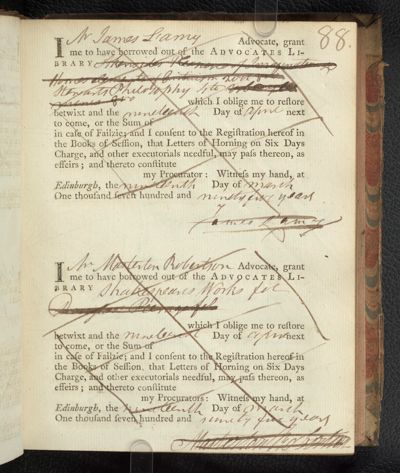 88.
I Mr James L'amy Advocate, grant
me to have borrowed out of the ADVOCATES LI-
BRARY
Stewarts Philosophy 4to
which I oblige me to reſtore
betwixt and the nineteenth Day of April next
to come, or the Sum of
in caſe of Failzie; and I conſent to the Regiſtration hereof in
the Books of Seſſion, that Letters of Horning on Six Days
Charge, and other executorials needful, may paſs thereon, as
effeirs; and thereto conſtitute
my Procurator: Witneſs my hand, at
Edinburgh, the nineteenth Day of March
One thouſand ſeven hundred and ninety five years
James L'amy
I Mr Masterton Robertson Advocate, grant
me to have borrowed out of the ADVOCATES LI-
BRARY Shakespeares Works fol
which I oblige me to reſtore
betwixt and the nineteenth Day of April next
to come, or the Sum of
in caſe of Failzie; and I conſent to the Regiſtration hereof in
the Books of Seſſion, that Letters of Horning on Six Days
Charge, and other executorials needful, may paſs thereon, as
effeirs; and thereto conſtitute
my Procurators: Witneſs my hand, at
Edinburgh, the nineteenth Day of March
One thouſand ſeven hundred and ninety five years
Masterton Robertson